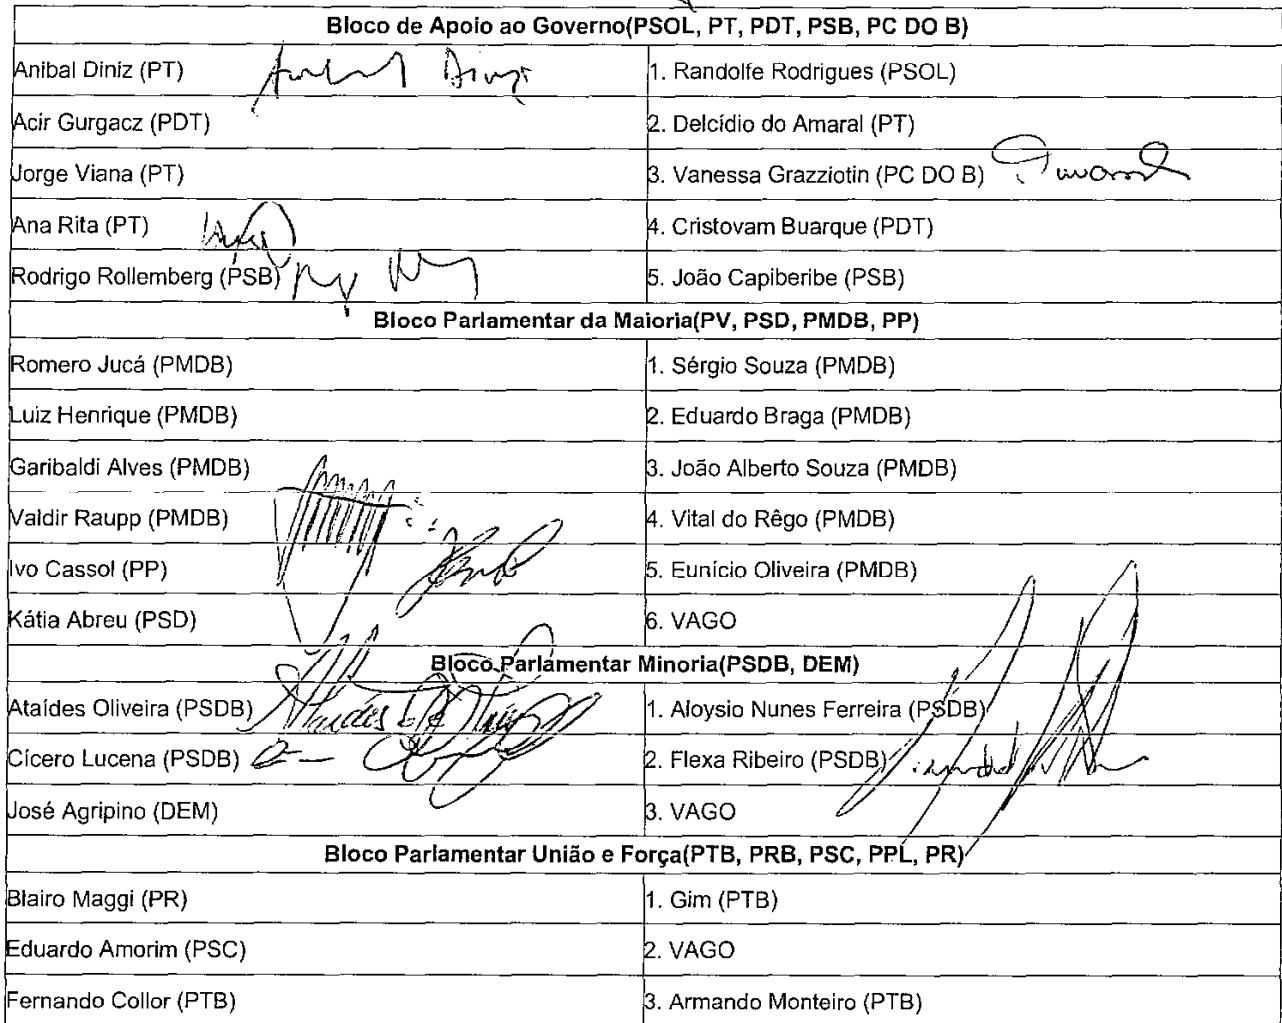 Bloco de Apoio ao Governo(PSOL, PT, PDT, PSB, PC DO B)
Anibal Diniz (PT) 1. Randolfe Rodrigues (PSOL)
Acir Gurgacz (PDT) 2. Delcídio do Amaral (PT)
Jorge Viana (PT) 3. Vanessa Grazziotin (PC DO B)
Ana Rita (PT) 4. Cristovam Buarque (PDT)
Rodrigo Rollemberg (PSB) 5. João Capiberibe (PSB)
Bloco Parlamentar da Maioria(PV, PSD, PMDB, PP)
Romero Jucá (PMDB) 1. Sérgio Souza (PMDB)
Luiz Henrique (PMDB) 2. Eduardo Braga (PMDB)
Garibaldi Alves (PMDB) 3. João Alberto Souza (PMDB)
Valdir Raupp (PMDB) 4. Vital do Rêgo (PMDB)
Ivo Cassol (PP) 5. Eunício Oliveira (PMDB)
Kátia Abreu (PSD) 6. VAGO
Bloco Parlamentar Minoria(PSDB, DEM)
Ataídes Oliveira (PSDB) 1. Aloysio Nunes Ferreira (PSDB)
Cícero Lucena (PSDB) 2. Flexa Ribeiro (PSDB)
José Agripino (DEM) 3. VAGO
Bloco Parlamentar União e Força(PTB, PRB, PSC, PPL, PR)
Blairo Maggi (PR) 1. Gim (PTB)
Eduardo Amorim (PSC) 2. VAGO
Fernando Collor (PTB) 3. Armando Monteiro (PTB)